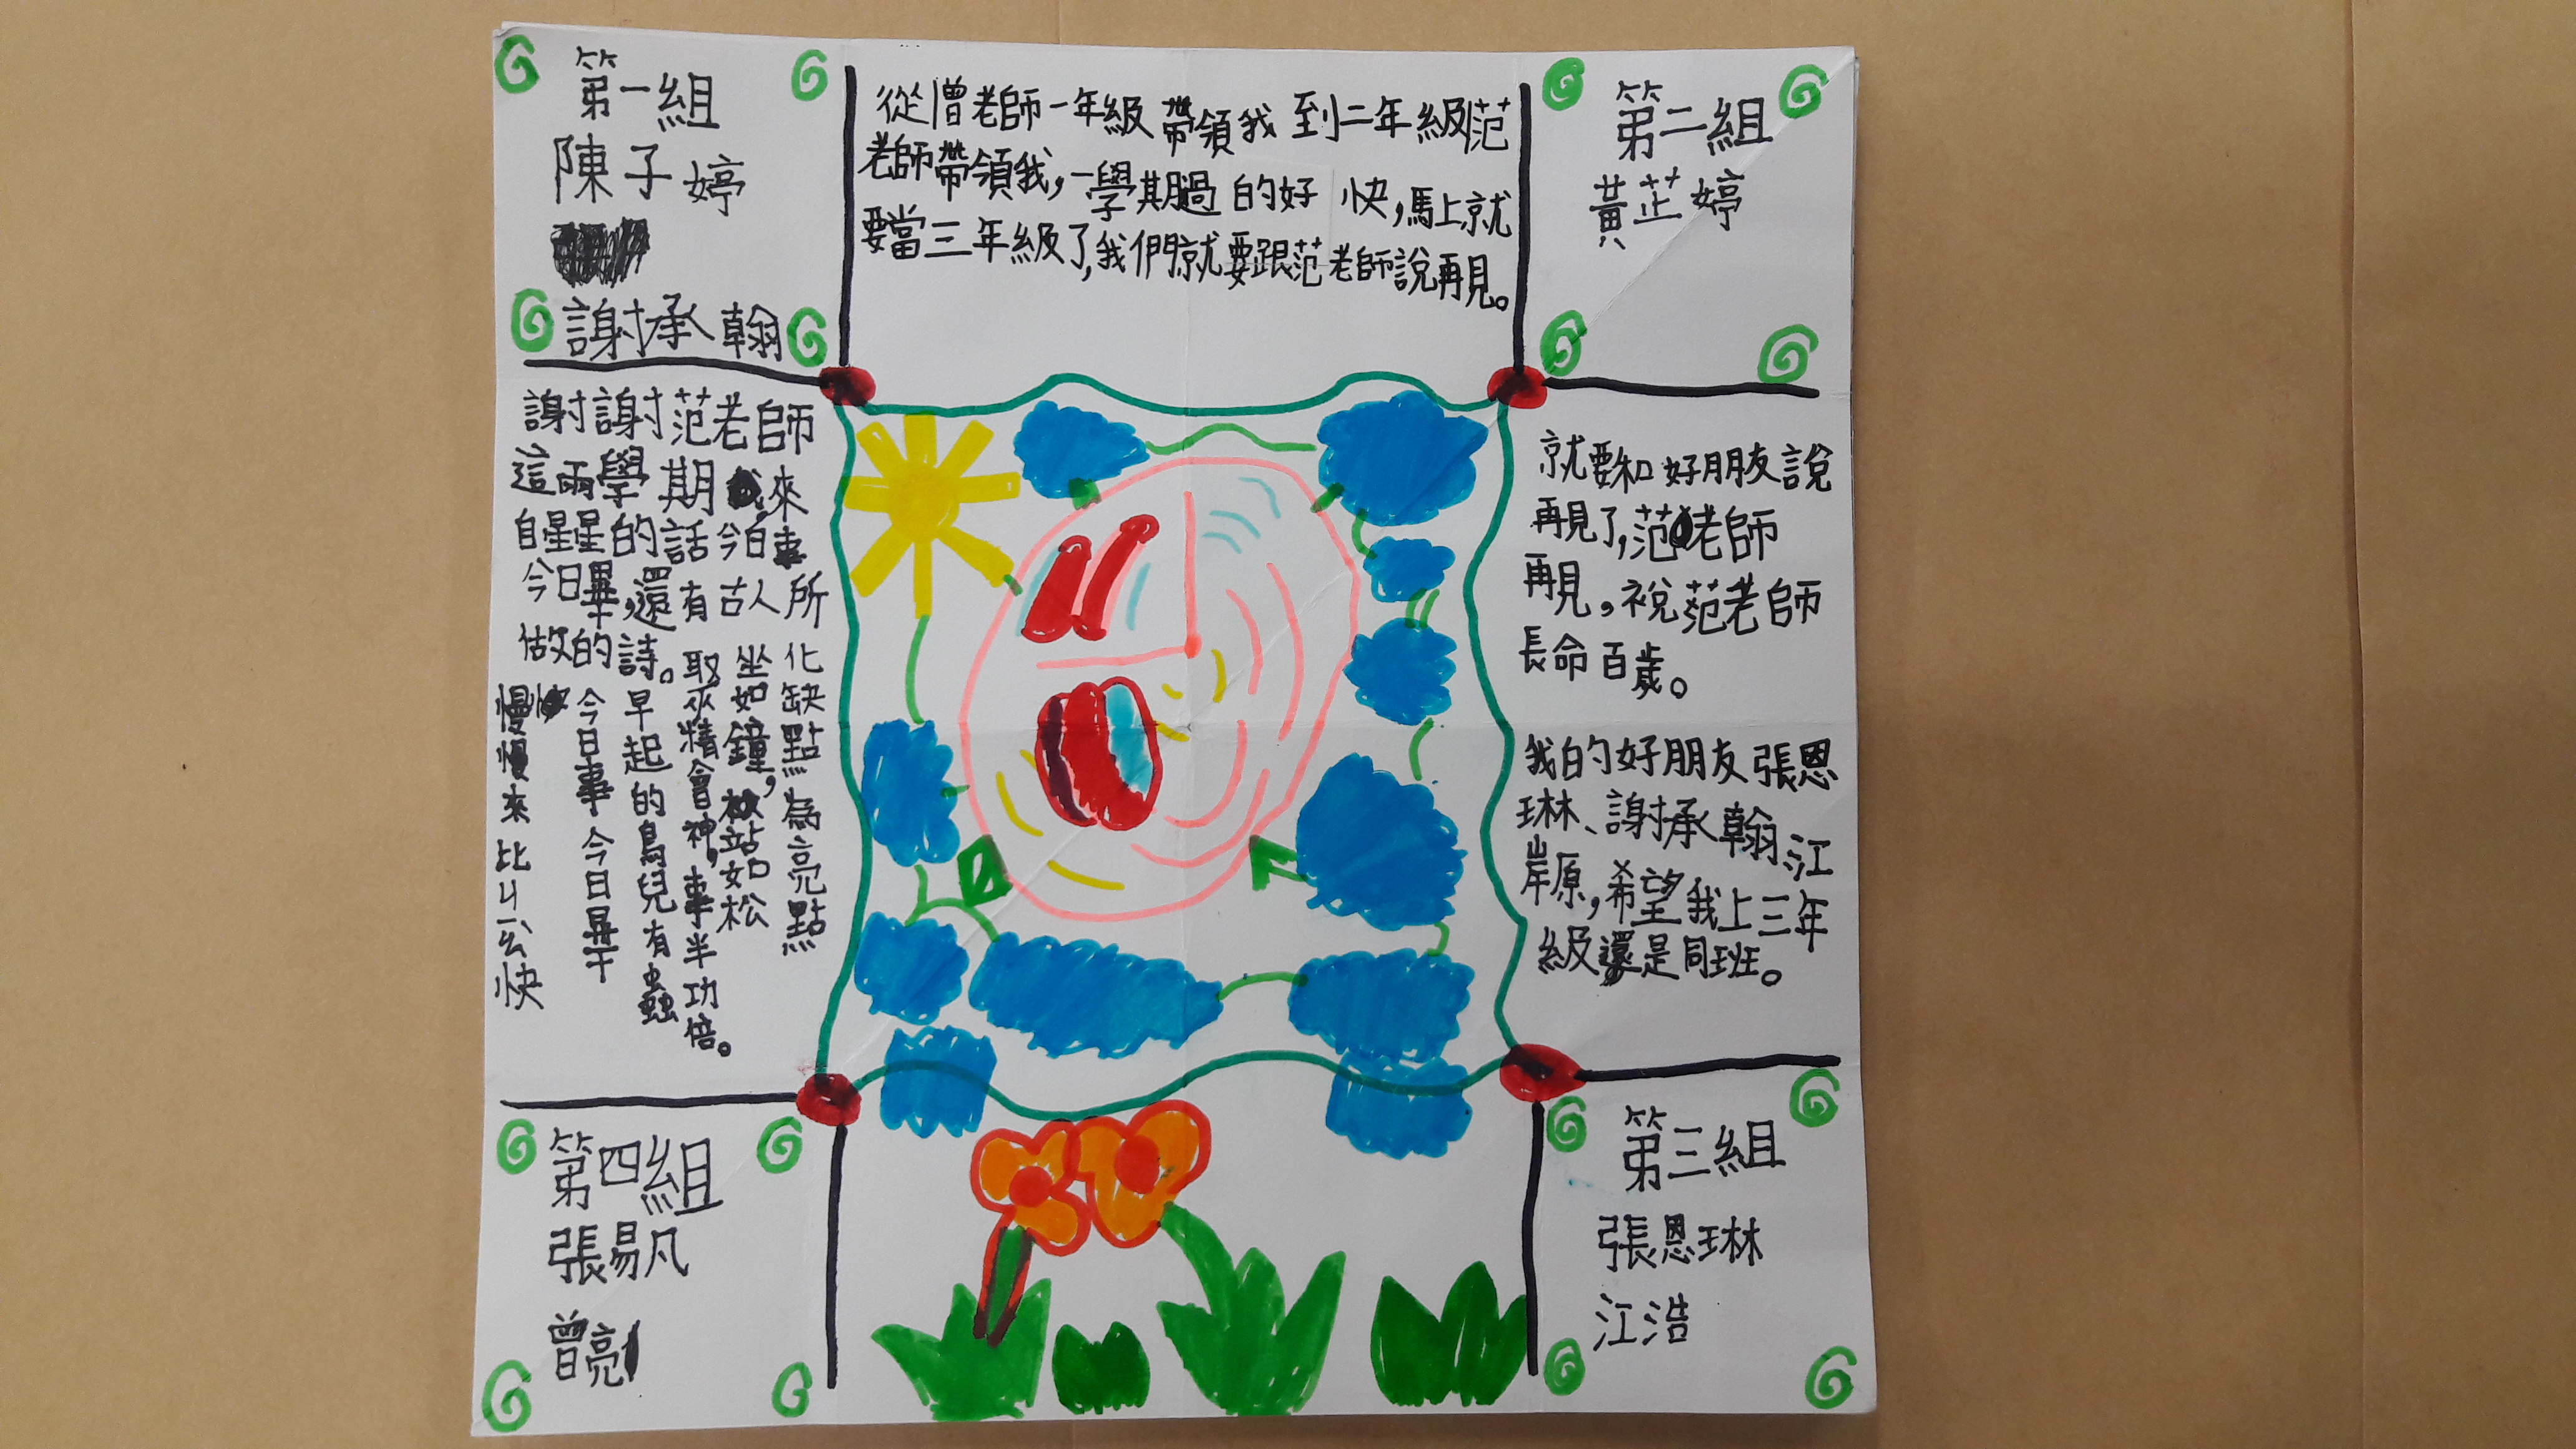 第一組
陳子婷
謝承翰
從僧老師一年級帶領我到二年級范
老師帶領我,一學期過的好快,馬上就
要當三年級了,我們就要跟范老師說再見。
第二組
黃芷婷
謝謝范老師
這兩學期來
自星星的話今日事
今日畢,還有古人所
做的詩。
化缺點為亮點
坐如鐘,站如松
聚精會神,事半功倍。
早起的鳥兒有蟲
今日事今日畢
慢慢來比ㄐㄧㄠ快
就要和好朋友說
再見了,范老師
再見。祝范老師
長命百歲。
我的好朋友張恩
琳、謝承翰江
岸原,希望我上三年
級還是同班。
第四組
張易凡
曾亮
第三組
張恩琳
江浩